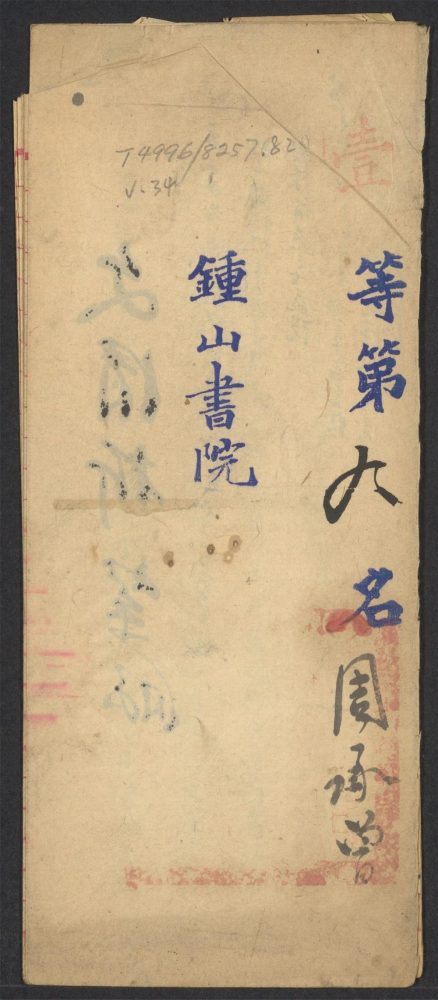 壹
等第九名周承曾
鍾山書院
T4996/8257.82
V.34